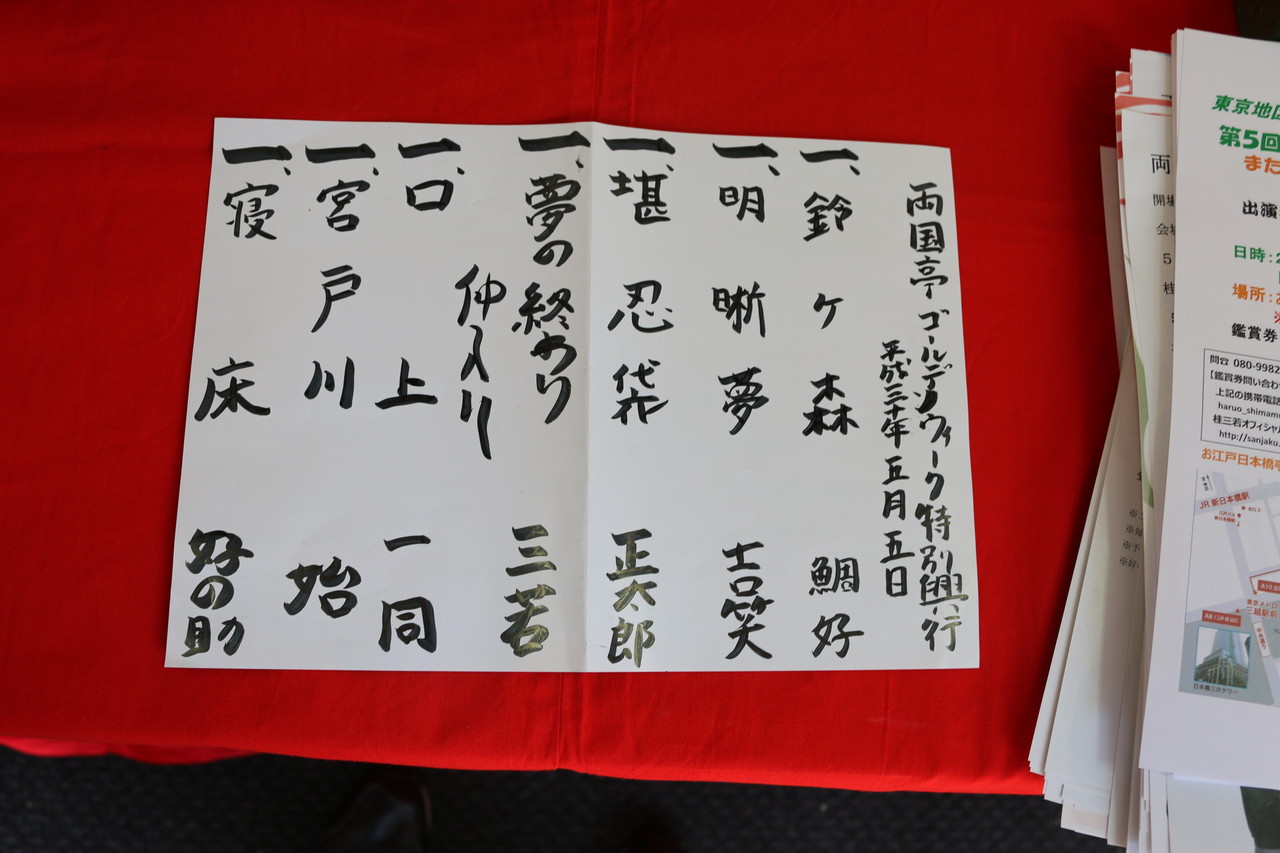 両国亭ゴールデンウィーク特別興行
平成三十年五月五日
一、鈴ヶ森 鯛好
一、明晰夢 吉笑
一、堪忍袋 正太郎
一、夢の終わり 三若
仲入り
一、口上 一同
一、宮戸川 始
一、寝床 好の助
東京地区
第5回
また
出演
日時:2
場所:2
鑑賞券
問☎ 080-9982
【鑑賞券問い合わ
上記の携帯電話
haruo_shimamu
桂三若オフィシャル
http://sanjaku.
お江戸日本橋亭
JR 新日本橋駅
三越駅前
日本橋三井タワー
両
開場
会場
5
桂